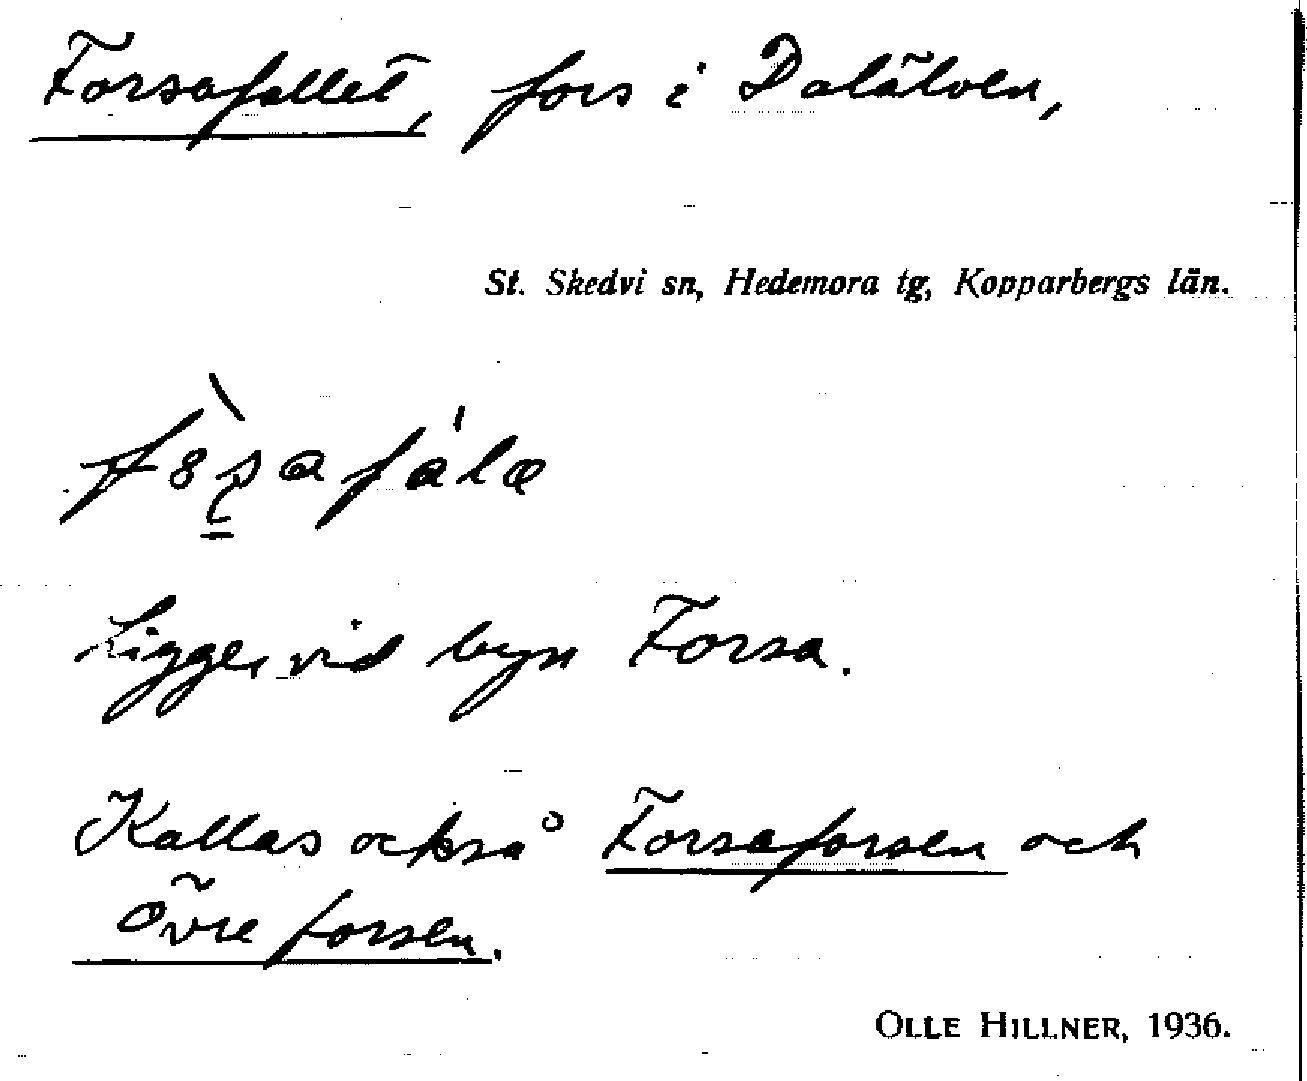 Forsafallet, fors i Dalälven,
St. Skedvi sn, Hedemora tg, Kopparbergs län.
Ligger vid byn Forsa.
Kallas också Forsaforsen och
Övre forsen.
OLLE HILLNER, 1936.